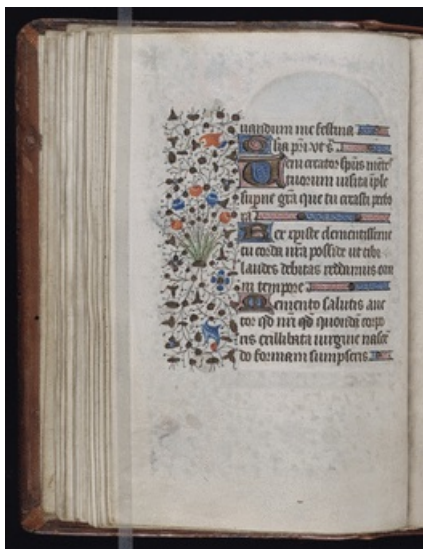 uandum me festina
Gl'ia pri. vt s.
Veni creator sp̄us mētes
tuorum visita īple
superne grā que tu creasti pecto
ra
xp̄iste clementissime
tu corda nrā posside ut tibi
laudes debitas reddamus om
ni tempore
Memento salutis auc
tor qd nrī qd quondā corpo
ris exillibata virgine nascē
do formam sumpseris